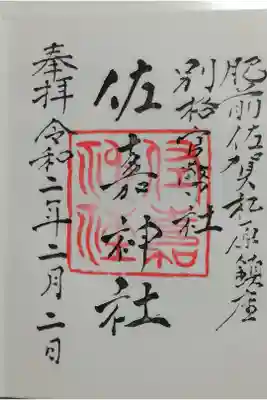 肥前佐賀松原鎮座
別格官幣社
佐嘉神社
奉拝 令和二年二月二日